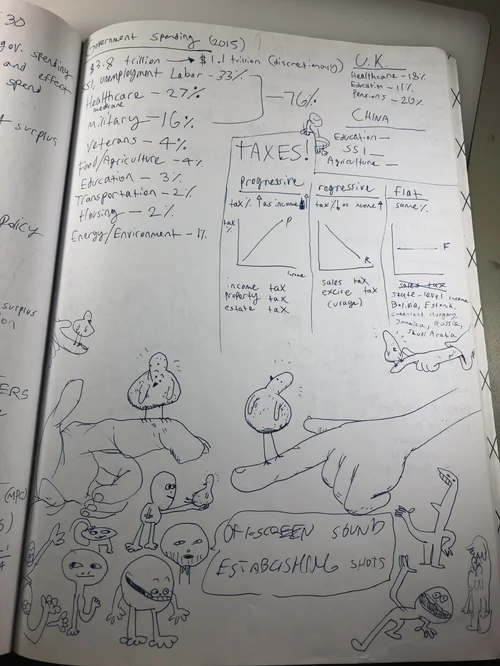 30
gov. spending
and effect
spend
surplus
Policy
surplus
ERS
(MPC)
Government spending (2015)
$3.8 trillion → $1.1 trillion (discretionary)
SSI, unemployment Labor - 33%
Healthcare - 27%
medicare
Military - 16%
76%
Veterans - 4%
Food/Agriculture - 4%
Education - 3%
Transportation - 2%
Housing - 2%
Energy/Environment - 1%
U.K.
Healthcare - 18%
Education - 11%
Pensions - 20%
CHINA
Education -
SSI
Agriculture -
TAXES!
progressive
tax% ↑ as income ↑
tax%
P
income
income tax
property tax
estate tax
regressive
tax% ↓ as income ↑
R
sales tax
excise tax
(usage)
Flat
same%
F
sales tax
state-level income
Bolivia, Estonia,
Hungary,
Jamaica, Russia,
Saudi Arabia
OFF-SCREEN SOUND
ESTABLISHING SHOTS